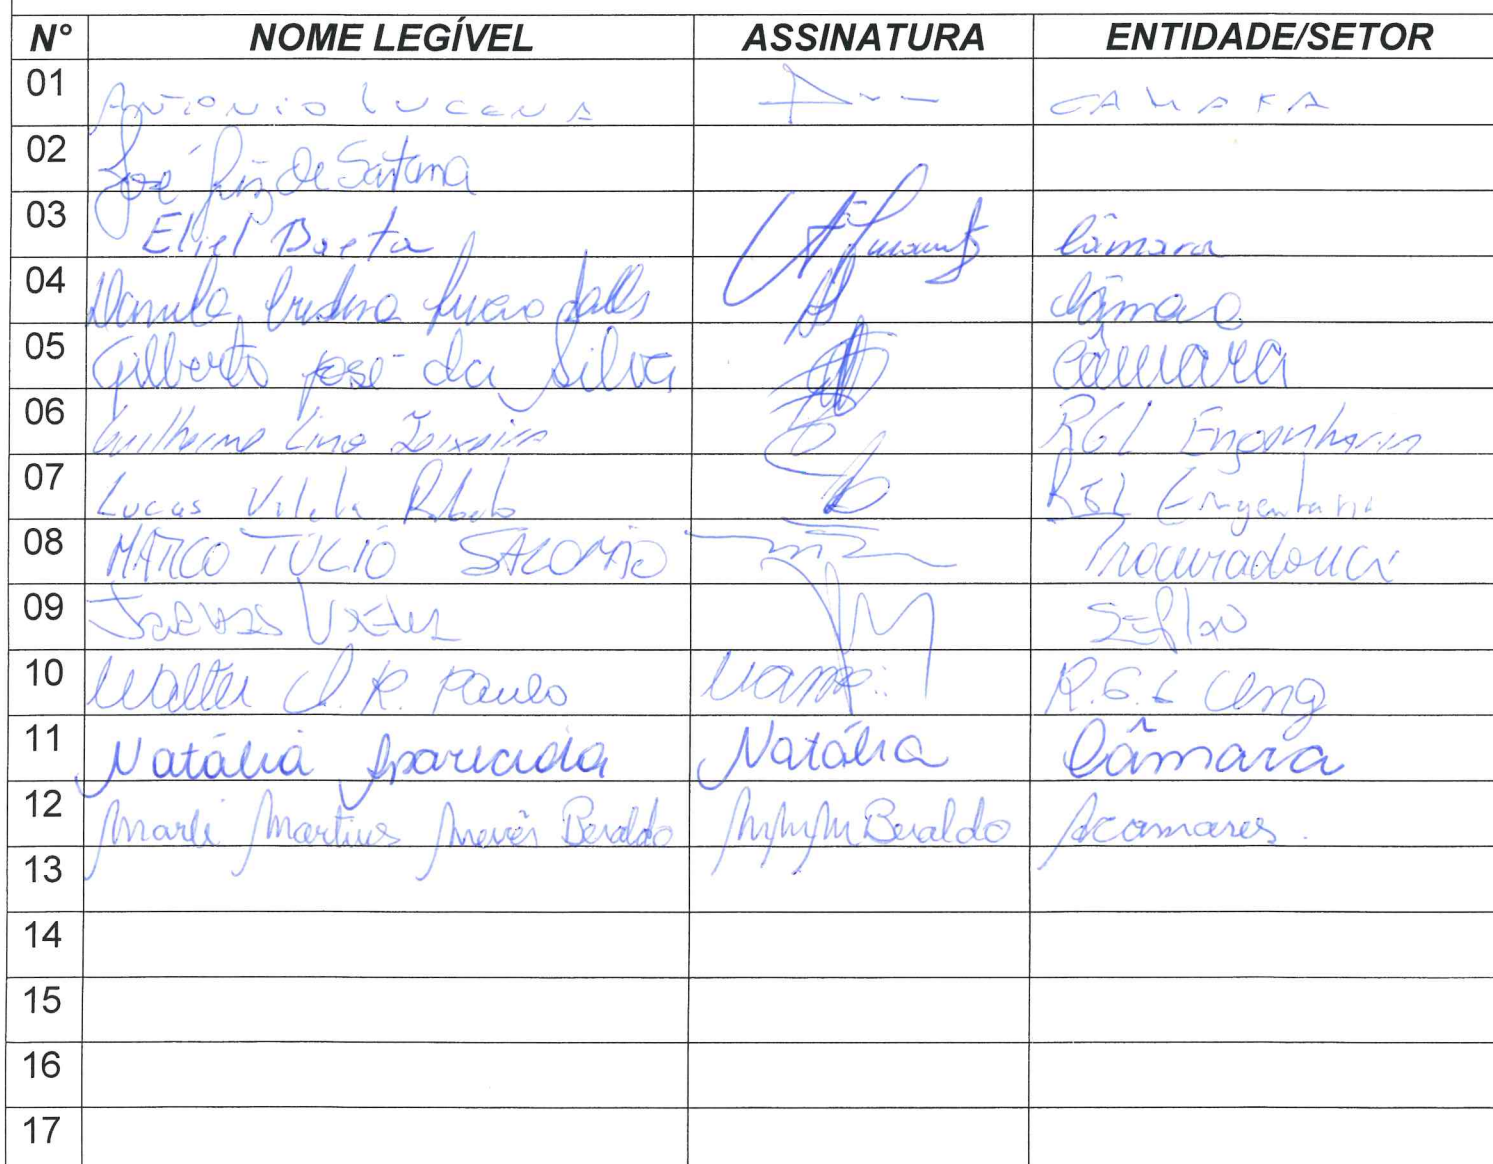 N° NOME LEGÍVEL ASSINATURA ENTIDADE/SETOR
01 ANTONIO LUCENA CAMARA
02 José Luiz de Santana
03 Eliel Baeta Câmara
04 Câmara
05 Gilberto José da Silva Câmara
06 Guilherme Lino Teixeira RGL Engenharia
07 Lucas Vilela Rabelo RGL Engenharia
08 MARCO TÚLIO SALOMÃO Procuradoria
09
10 Walter R. Paulo R.G.L Eng
11 Natália Aparecida Natália Câmara
12 Marli Martins Neves Beraldo Beraldo Acamares.
13
14
15
16
17